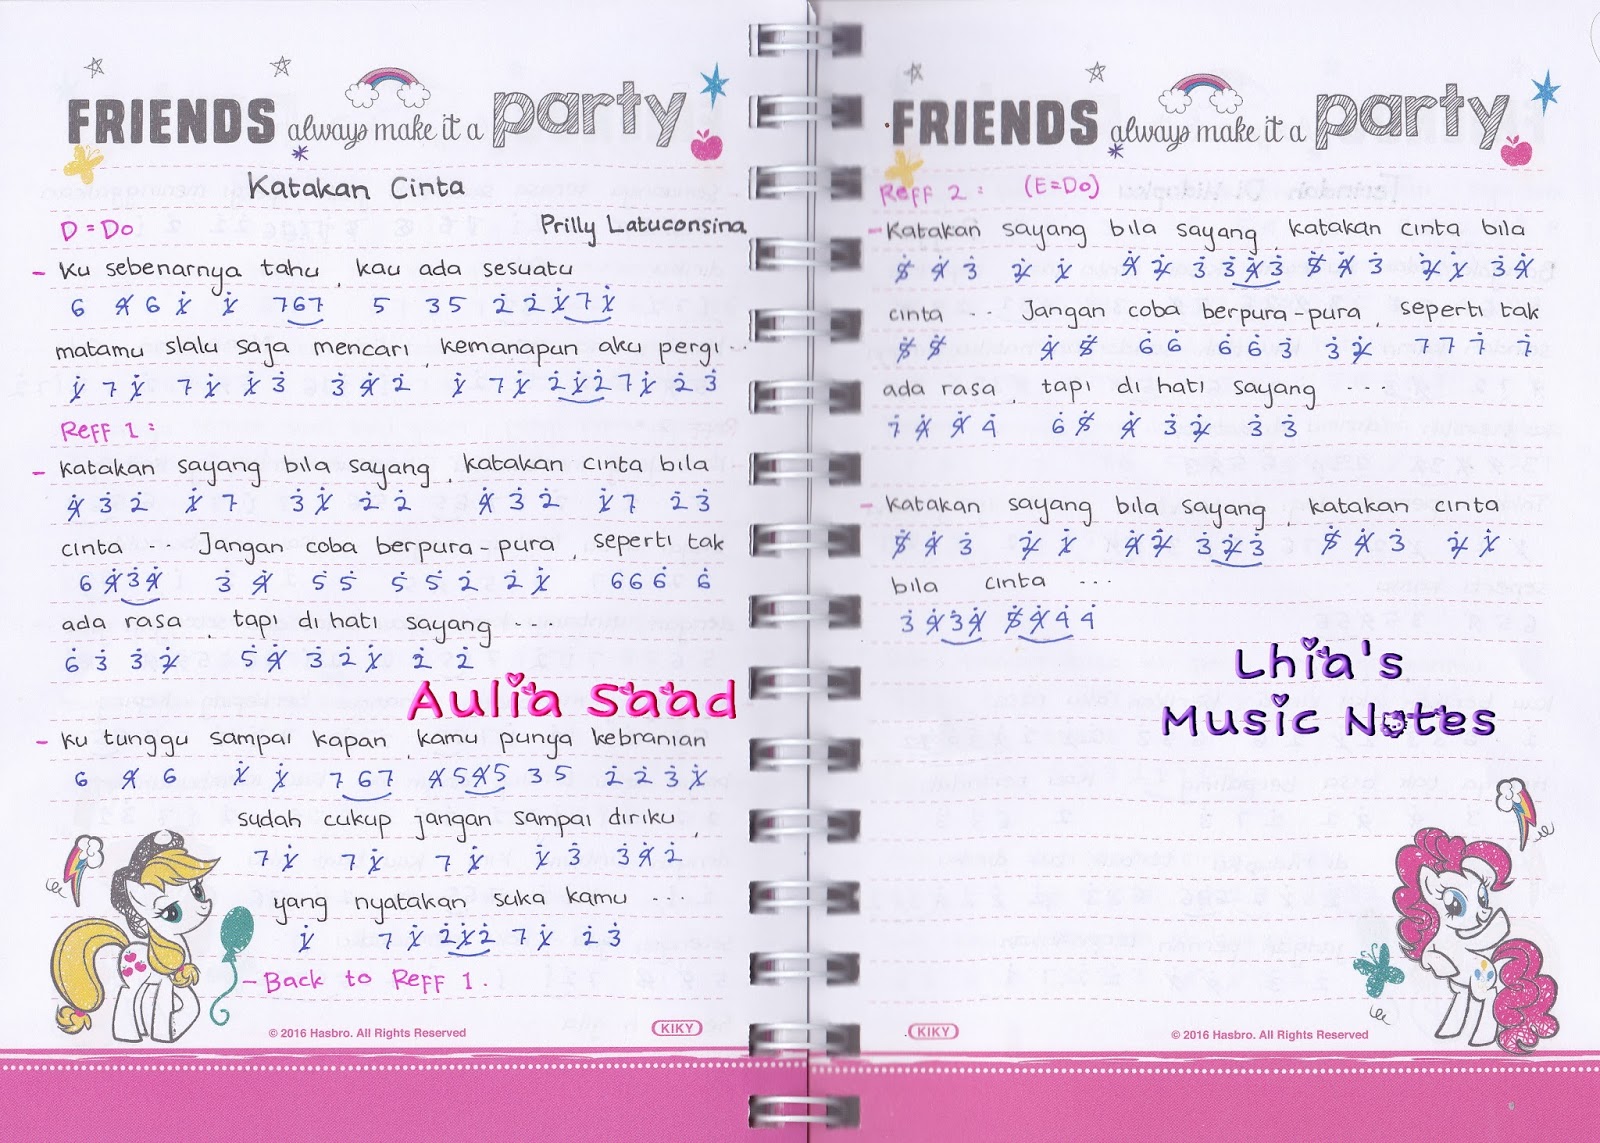 FRIENDS always make it a party
Katakan Cinta
D = Do
Prilly Latuconsina
- Ku sebenarnya tahu, kau ada sesuatu
6 4̸ 6 1̸̇ 1̸̇ 767 5 35 2̇ 2̇ 1̸̇ 7 1̸̇
matamu slalu saja mencari, kemanapun aku pergi...
1̸̇ 7 1̸̇ 7 1̸̇ 1̸̇ 3̇ 3̇ 4̸̇ 2̇ 1̸̇ 7 1̸̇ 2̇ 1̸̇ 2̇ 7 1̸̇ 2̇ 3̇
Reff 1 :
- katakan sayang bila sayang, katakan cinta bila
4̸̇ 3̇ 2̇ 1̸̇ 7 3̇ 1̸̇ 2̇ 2̇ 4̸̇ 3̇ 2̇ 1̸̇ 7 2̇ 3̇
cinta ... Jangan coba berpura-pura, seperti tak
6 4̸̇ 3̇ 4̸̇ 3̇ 4̸̇ 5̇ 5̇ 5̇ 5̇ 2̇ 2̇ 1̸̇ 6 6 6̇ 6̇
ada rasa, tapi di hati sayang ...
6̇ 3̇ 3̇ 2̸̇ 5̇ 4̸̇ 3̇ 2̇ 1̸̇ 2̇ 2̇
Aulia Saad
- Ku tunggu sampai kapan, kamu punya kebranian
6 4̸ 6 1̸̇ 1̸̇ 7 67 4̸ 5 4̸ 5 3 5 2̇ 2̇ 3̇ 1̸̇
sudah cukup jangan sampai diriku,
7 1̸̇ 7 1̸̇ 7 1̸̇ 1̸̇ 3̇ 3̇ 4̸̇ 2̇
yang nyatakan suka kamu ...
1̸̇ 7 1̸̇ 2̇ 1̸̇ 2̇ 7 1̸̇ 2̇ 3̇
- Back to Reff 1.
© 2016 Hasbro. All Rights Reserved
KIKY
FRIENDS always make it a party
Reff 2 : (E=Do)
- Katakan sayang bila sayang, katakan cinta bila
5̸̇ 4̸̇ 3̇ 2̸̇ 1̸̇ 4̸̇ 2̸̇ 3̇ 3̇ 4̸̇ 3̇ 5̸̇ 4̸̇ 3̇ 2̸̇ 1̸̇ 3̇ 4̸̇
cinta ... Jangan coba berpura-pura, seperti tak
5̸̇ 5̸̇ 4̸̇ 5̸̇ 6̇ 6̇ 6̇ 6̇ 3̇ 3̇ 2̸̇ 7 7 7̇ 7̇
ada rasa, tapi di hati sayang ...
7̇ 4̸̇ 4̸̇ 4̇ 6̇ 5̸̇ 4̸̇ 3̇ 2̸̇ 3̇ 3̇
- Katakan sayang bila sayang, katakan cinta
5̸̇ 4̸̇ 3̇ 2̸̇ 1̸̇ 4̸̇ 2̸̇ 3̇ 2̸̇ 3̇ 5̸̇ 4̸̇ 3̇ 2̸̇ 1̸̇
bila cinta ...
3̇ 4̸̇ 3̇ 4̸̇ 5̸̇ 4̸̇ 4̇ 4̇
Lhia's
Music Notes
KIKY
© 2016 Hasbro. All Rights Reserved